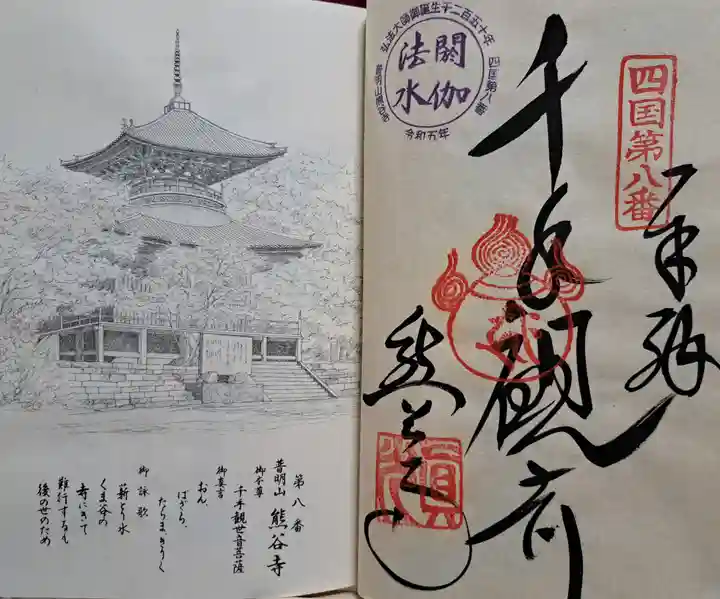 四国第八番
奉拝
千手観音
熊谷寺
弘法大師御誕生千二百五十年
四国第八番
普明山熊谷寺
令和五年
閼伽
法水
第八番
普明山 熊谷寺
御本尊
千手観世音菩薩
御真言
おん、
ばざら、
たらま、きりく
御詠歌
薪とり水
くま谷の
寺にきて
難行するも
後の世のため